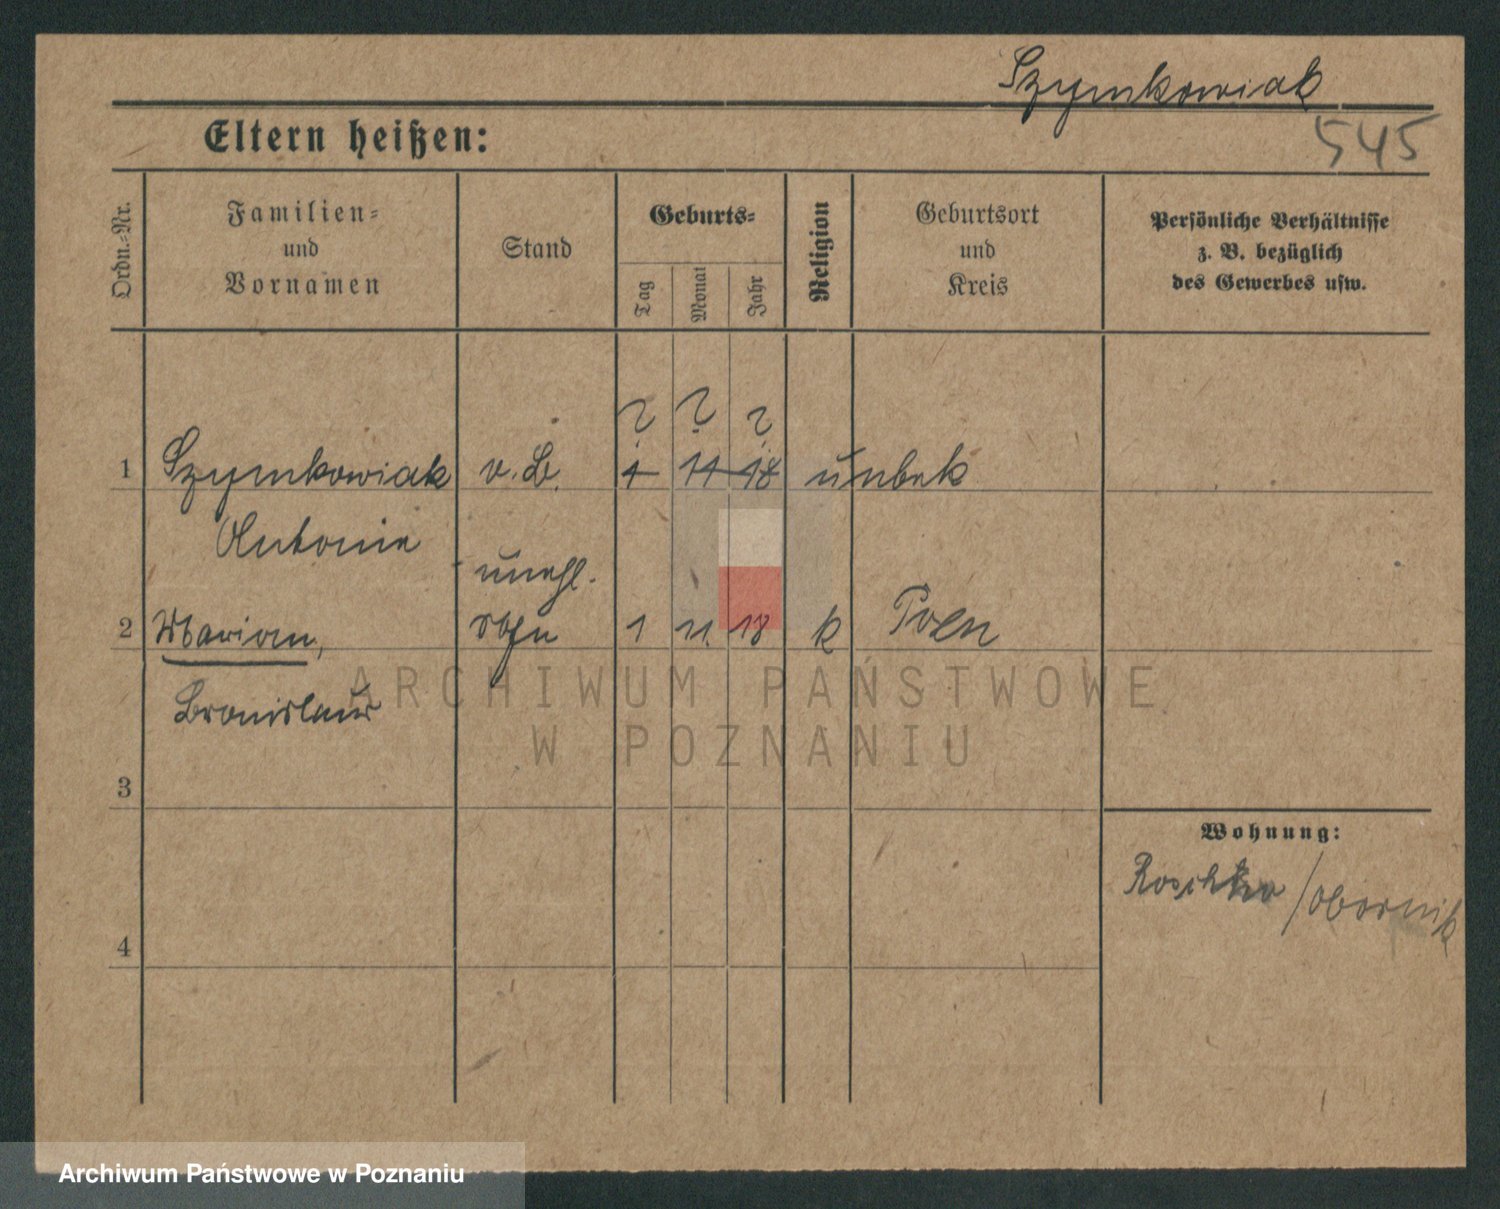 Szymkowiak
545
Eltern heißen:
Ordn.-Nr.
Familien-
und
Vornamen
Stand
Geburts-
Tag
Monat
Jahr
Religion
Geburtsort
und
Kreis
Persönliche Verhältnisse
z. B. bezüglich
des Gewerbes usw.
? ? ?
1 Szymkowiak v. B. 1 11 18 unbek
Antonie
unehl.
2 Marian, Sohn 1 11. 18 k Posen
Bronislaus
ARCHIWUM PAŃSTWOWE
W POZNANIU
3
Wohnung:
/Obornik
4
Archiwum Państwowe w Poznaniu